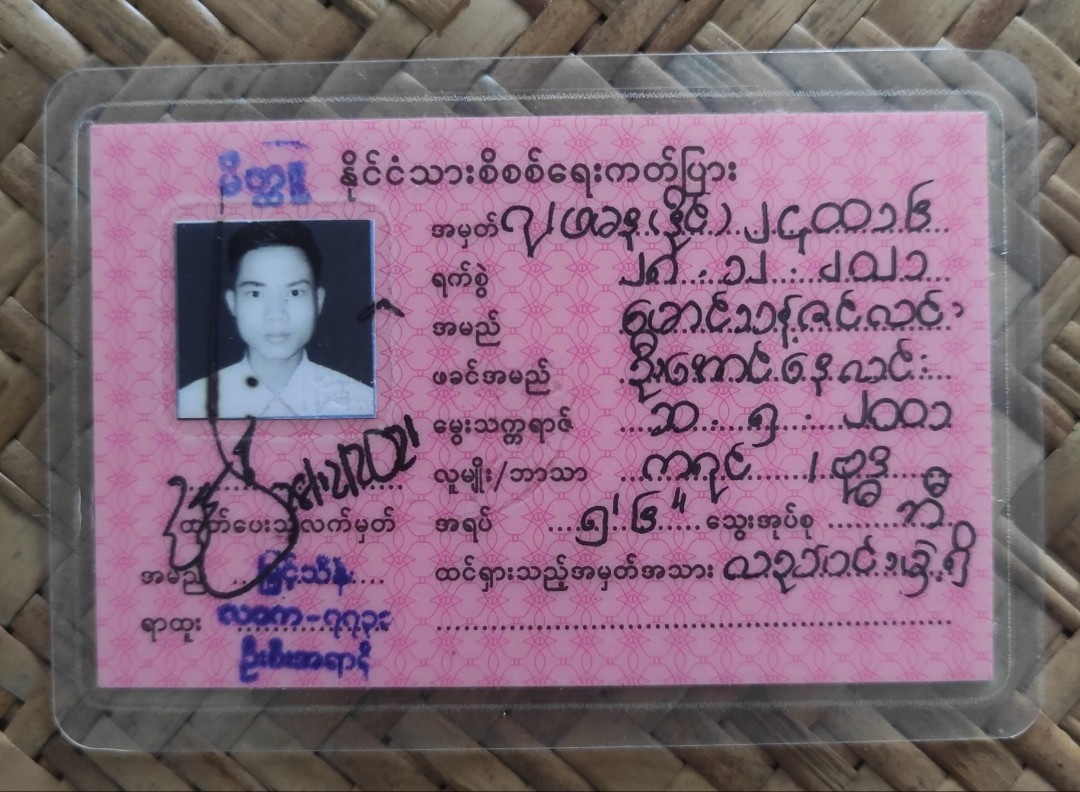 မိတ္ထူ နိုင်ငံသားစိစစ်ရေးကတ်ပြား
အမှတ် ၇/ဖခန(နိုင်) ၂၄၀၀၁၆
ရက်စွဲ ၂၈.၁၂.၂၀၂၁
အမည်
ဖခင်အမည် ဦးအောင်နေလင်း
မွေးသက္ကရာဇ် ၁၁.၅.၂၀၀၁
လူမျိုး/ဘာသာ ကရင် / ဗုဒ္ဓ
အရပ် ၅' ၆" သွေးအုပ်စု ဘီ
ထင်ရှားသည့်အမှတ်အသား
28/12/2021
ထုတ်ပေးသူလက်မှတ်
အမည် မြင့်သိန်း
ရာထူး လဝက-၇၇၃၁
ဦးစီးအရာရှိ